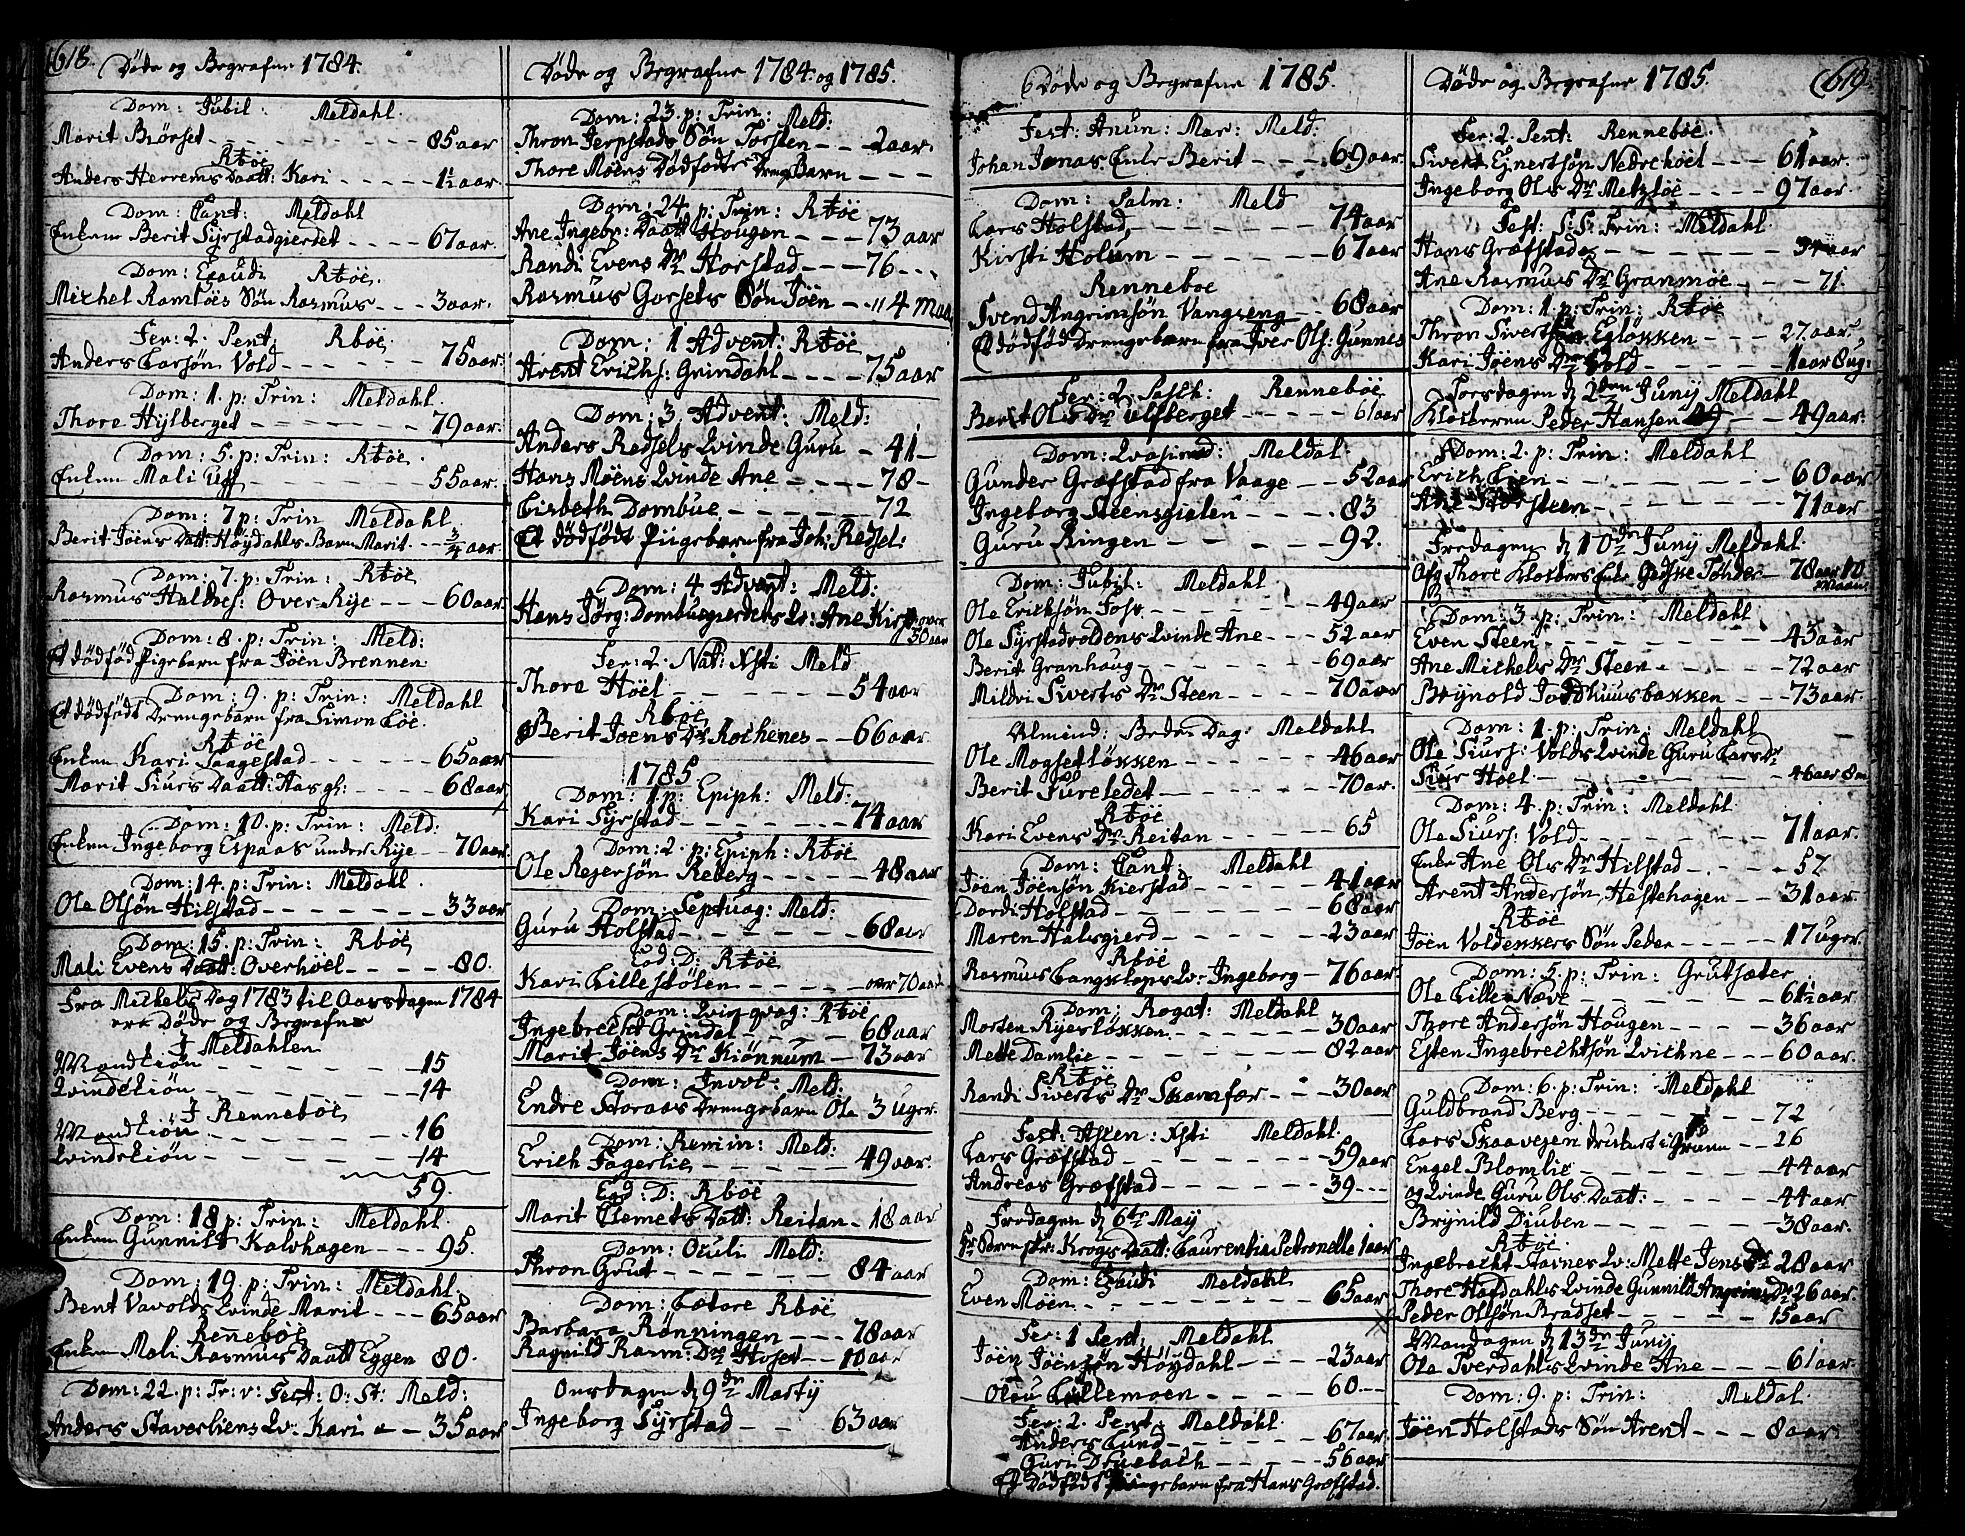 618.
Døde og Begrafne 1784.
Dom: Jubil: Meldahl.
Marit Børset 85 aar
Rbøe
Anders Herrems Daatt: Kari 1½ aar
Dom: Cant: Meldahl
Enken Berit Syrstadgierdet 67 aar.
Dom: Exaudi Rbøe
Michel Ramløes Søn Rasmus 3 aar.
Fer: 2. Pent: Rbøe
Anders Larsøn Vold 75 aar
Dom: 1. p: Trin: Meldahl.
Thore Hylberget 79 aar.
Dom: 5. p: Trin: Rbøe.
Enken Mali Uff 55 aar.
Dom: 7 p: Trin Meldahl
Berit Jøens Datt: Høydahls Barn Marit ¾ aar.
Dom: 7. p: Trin: Rbøe
Rasmus Haldos: Over Rye 60 aar
Dom: 8. p: Trin: Meld:
Et dødfød Pigebarn fra Jøen Brennen
Dom: 9. p: Trin: Meldahl
Et dødfødt Drengebarn fra Simon Løe.
Rbøe
Enken Kari Saagestad 65 aar
Marit Siurs Daatt: Hasgl: 68 aar
Dom: 10. p: Trin: Meld:
Enken Ingeborg Espaas under Rye 70 aar
Dom: 14. p: Trin: Meldahl.
Ole Olsøn Hilstad 33 aar
Dom: 15. p: Trin: Rbøe
Mali Evens Daatt: Overhoel 80.
Fra Michelis Dag 1783 til Aarsdagen 1784
ere Døde og Begrafne
I Meldahlen
Mandkiøn 15
Qvindekiøn 14
I Rennebøe
Mandkiøn 16
Qvindekiøn 14
59.
Dom: 18 p: Trin: Meldahl.
Enken Gunnild Kalvhagen 95.
Dom: 19. p: Trin: Meldahl.
Bent Vavolds Qvinde Marit 65 aar
Rennebøe
Enken Mali Rasmus Daatt Eggen 80.
Dom: 22. p: Tr: v: Fest: O: St: Meld:
Anders Staverliens Qv: Kari 35 aar
Døde og Begrafne 1784 og 1785.
Dom: 23. p: Trin: Meld:
Thron Jerpstads Søn Torsten 2 aar.
Thore Moens Dødfødte Dreng Barn
Dom: 24. p: Trin: Rbøe
Ane Ingebr: Daatt Hougen 73 aar
Randi Evens Dr Horstad 76
Rasmus Gorsets Søn Jøen 4 maa
Dom: 1 Advent: Rbøe
Arent Erichs: Grindahl 75 aar
Dom: 3 Advent: Meld:
Anders Retsels Qvinde Guru 41
Hans Moens Qvinde Ane 78
Lisbeth Dombue 72
Et dødfødt Pigebarn fra Joh: Retsel:
Dom: 4 Advent: Meld:
Hans Jørg: Dombugierdets Qv: Ane Kirst over
30 aar
Fer: 2. Nat: Xsti Meld
Thore Høel 54 aar
Rbøe
Berit Joens Dr Rochenes 66 aar.
1785
Dom: 1. p: Epiph: Meld:
Kari Syrstad 74 aar
Dom: 2. p: Epiph: Rbøe
Ole Rejersøn Reberg 48 aar
Dom: Septuag: Meld:
Guru Holstad 68 aar
Eod: D: Rbøe
Kari Lillestølen over 70 aar
Dom: Qvinqvag: Rbøe
Ingebrecht Grindal 68 aar
Marit Jøens Dr Kiønnum 73 aar
Dom: Invoc: Meld:
Endre Storaas Drengebarn Ole 3 uger.
Dom: Remin: Meld:
Erich Fagerlie 49 aar.
Eod: D: Rbøe
Marit Clemets Datt: Reitan 18 aar
Dom: Oculi Meld:
Thron Grut 84 aar
Dom: Lætare Rbøe
Barbara Rønningen 78 aar
Ragnild Rasm: Dr Hoset 10 aar
Onsdagen d 9de Martij
Ingeborg Syrstad 63 aar
Døde og Begrafne 1785.
Fest: Anun: Mar: Meld:
Johan Jonas Enke Berit 69 aar
Dom: Palm: Meld
Lars Holstad 74 aar
Kirsti Holum 67 aar
Rennebøe
Svend Angrimsøn Vangseng 68 aar
Et dødfød Drengebarn fra Iver Ols: Gunnes
Fer: 2. Pasch: Rennebøe
Berit Ols Dr Ulsberget 61 aar
Dom: Qvasimod: Meldal.
Gunder Græfstad fra Vaage 52 aar
Ingeborg Steensgielen 83
Guru Ringen 92.
Dom: Jubil: Meldahl
Ole Erichsøn Foss 49 aar
Ole Syrstadvoldens Qvinde Ane 52 aar
Berit Granhoug 69 aar
Mildri Siverts Dr Steen 70 aar
Almind: Bede Dag: Meldahl
Ole Mogsetløkken 46 aar
Berit Furesledet 70 ar.
Rbøe
Kari Evens Dr Reitan 65
Dom: Cant: Meldahl
Jøen Jøensøn Kierstad 41 aar
Dordi Holstad 68 aar
Maren Halsgierd 23 aar
Rbøe
Rasmus Langklops Qv: Ingeborg 76 aar
Dom: Rogat: Meldahl
Morten Ryesløkken 30 aar
Mette Damlie 82 aar
Rbøe
Randi Siverts Dr Skamfær 30 aar
Fest: Ascen: Xsti Meldahl.
Lars Græfstad 59 aar
Andreas Græfstad 39
Fredagen d 6te Maij
Krogs Daatt: Laurentia Petronelle 1 aar
Dom: Exaudi Meldahl
Even Moen 65 aar
Fer: 1 Pent: Meldahl
Jøen Jøensøn Høydahl 23 aar
Olau Lillemoen 60
Fer: 2. Pent: Meldahl.
Anders Lund 67 aar
Guri Druebakk 56 aar
Et Dødfødt Pigebarn fra Hans Græfstad.
Døde og Begrafne 1785.
619.
Fer: 2. Pent: Rennebøe.
Sivert Ejnertsøn Nedrehoel 61 aar.
Ingeborg Ols Dr Metzløe 97 aar.
Fest: S: S: Trin: Meldahl.
Hans Græfstad aar
Ane Rasmus Dr Granmoe 71.
Dom: 1. p: Trin: Rbøe
Thron Siverts Egløkken 27. aar
Kari Jøens Dr Vold 1 aar 8 ug:
Torsdagen d 2den Junij Meldahl
Klokkeren Peder Hansen 49 aar.
Dom: 2. p: Trin: Meldahl
Erich Lien 60 aar
Ane Steen 71 aar
Fredagen d 10de Junij Meldahl.
Afg: Thore Klokkers Enke Giedske Tønder 78 aar 10
Maan
Dom: 3. p: Trin: Meldahl
Even Steen 43 aar
Ane Michels Dr Steen 72 aar
Brynold Jaddhuusbakken 73 aar.
Dom: 1. p: Trin: Meldahl
Ole Siurs: Volds Qvinde Guru Lars Dr
Siur Hoel 46 aar 8
Dom: 4. p: Trin: Meldahl
Ole Siurs: Vold 71 aar.
Enke Ane Ols Dr Hilstad 57
Arent Andersøn Hestehagen 31 aar.
Rbøe
Jøen Voldekkers Søn Peder 17 uger
Dom: 5. p: Trin: Grutsæter
Ole Lille Næve 61½ aar
Thore Andersøn Hougen 36 aar.
Esten Ingebrechtsøn Qvickne 60 aar.
Dom: 6. p: Trin: Meldahl
Guldbrand Berg 72
Lars Skaavejen druknet i 26
Engel Blomlie 44 aar
og Qvinde Guru Ols Daatt: 44 aar
Brynild Diuben 38 aar.
Rbøe.
Ingebrecht Stavnes Qv: Mette Jens Dr 28 aar
Thore Hafdahls Qvinde Gunnild Angrims Dr 26 aar.
Peder Olsøn Bradset 15 aar
Mandagen d 13de Junij
Ole Tverdahls Qvinde Ane 61 aar.
Dom: 9. p: Trin: Meldal.
Jøen Holstads Søn Arent 8 aar.